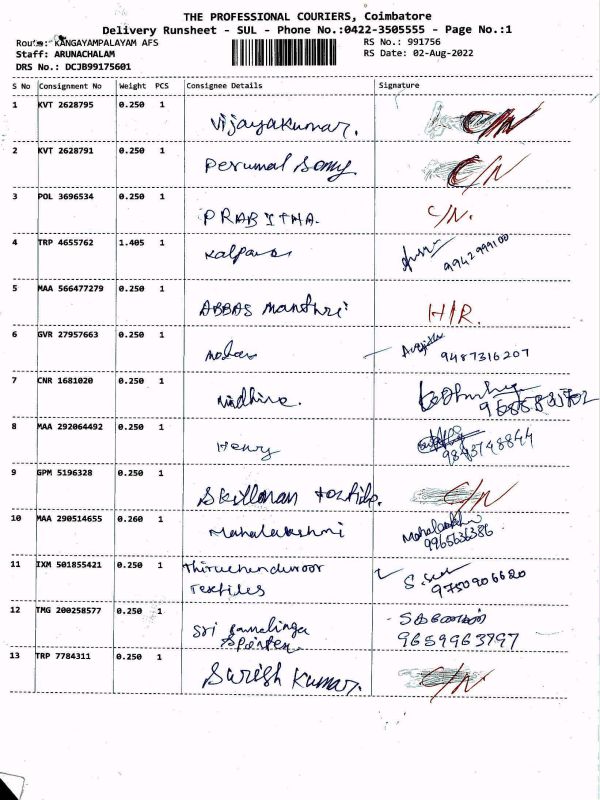 THE PROFESSIONAL COURIERS, Coimbatore
Delivery Runsheet - SUL - Phone No.:0422-3505555 - Page No.:1
Route: KANGAYAMPALAYAM AFS
RS No.: 991756
Staff: ARUNACHALAM
RS Date: 02-Aug-2022
DRS No.: DCJB99175601
S No Consignment No Weight PCS Consignee Details Signature
1 KVT 2628795 0.250 1 Vijayakumar. C/N
2 KVT 2628791 0.250 1 Perumal Samy. C/N
3 POL 3696534 0.250 1 PRABITHA. C/N.
4 TRP 4655762 1.405 1 Kalpana 9942999100
5 MAA 566477279 0.250 1 ABBAS Manthri H/R.
6 GVR 27957663 0.250 1 9487316207
7 CNR 1681020 0.250 1
8 MAA 292064492 0.250 1 Henry 9843748844
9 GPM 5196328 0.250 1 Skillman C/N
10 MAA 290514655 0.260 1 Mahalakshmi
9965636386
11 IXM 501855421 0.250 1 Thiruchenduroor
Textiles 9750906620
12 TMG 200258577 0.250 1 Sri Ramalinga
9659963797
13 TRP 7784311 0.250 1 Suresh Kumar. C/N